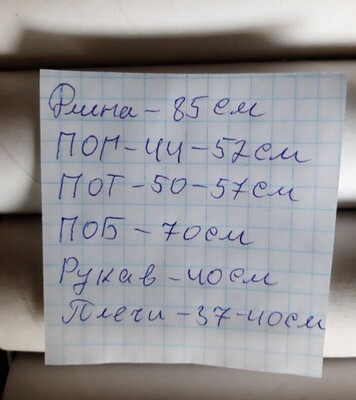 Длина - 85см
ПОГ - 44 - 57см
ПОТ - 50 - 57см
ПОБ - 70см
Рукав - 40см
Плечи - 37 - 40см